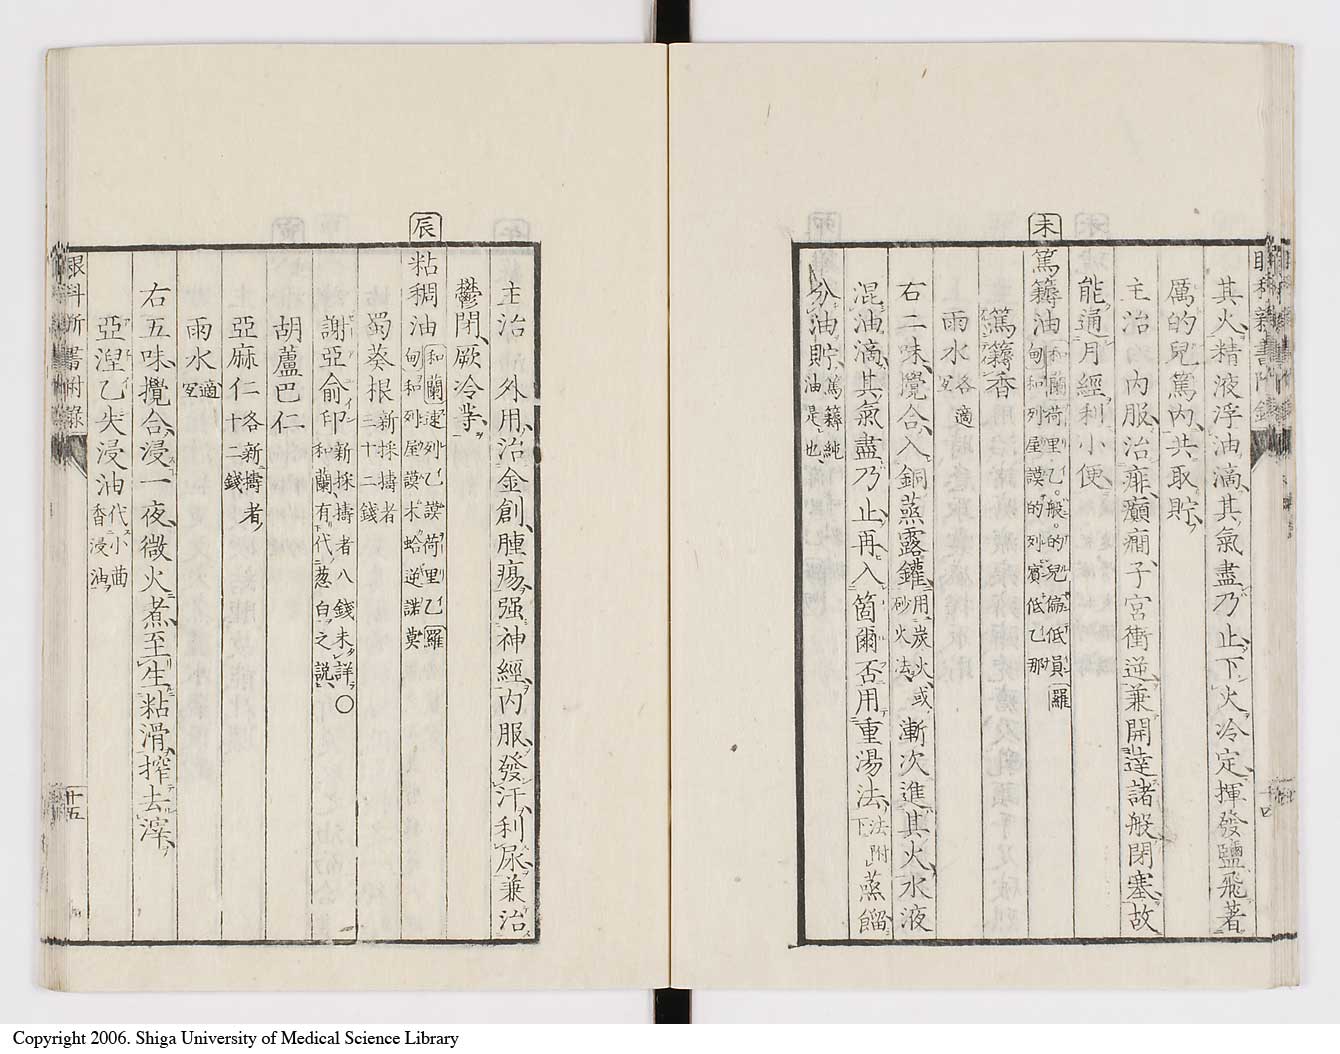 其火精液浮油滴其氣盡乃止下火冷定揮發鹽飛著
厲的兒篤内共取貯
主治 内服治痱癲癇子宮衝逆兼開達諸般閉塞故
能通月經利小便
未
篤耨油 和蘭荷里乙般的兒偏低員羅
甸和列屋謨的列賓低乙那
篤耨香
雨水 各適
宜
右二味攪合入銅蒸露鑵 用炭火或
砂火法 漸次進其火水液
混油滴其氣盡乃止再入箇爾否用重湯法 法附
下 蒸餾
分油貯 篤耨純
油是也
主治 外用治金創腫瘍强神經内服發汗利尿兼治
鬱閉厥冷等
辰
粘稠油 和蘭速列乙謨荷里乙羅
甸和列屋謨木蛤逆諾莫
蜀葵根 新採擣者
三十二錢
謝亞俞印 新採擣者八錢未詳〇
和蘭有下代葱白之説
胡蘆巴仁
亞麻仁 各新擣者
十二錢
雨水 適
宜
右五味攪合浸一夜微火煮至生粘滑搾去滓
亞湼乙失浸油 代小茴
香浸油
十五
Copyright 2006. Shiga University of Medical Science Library